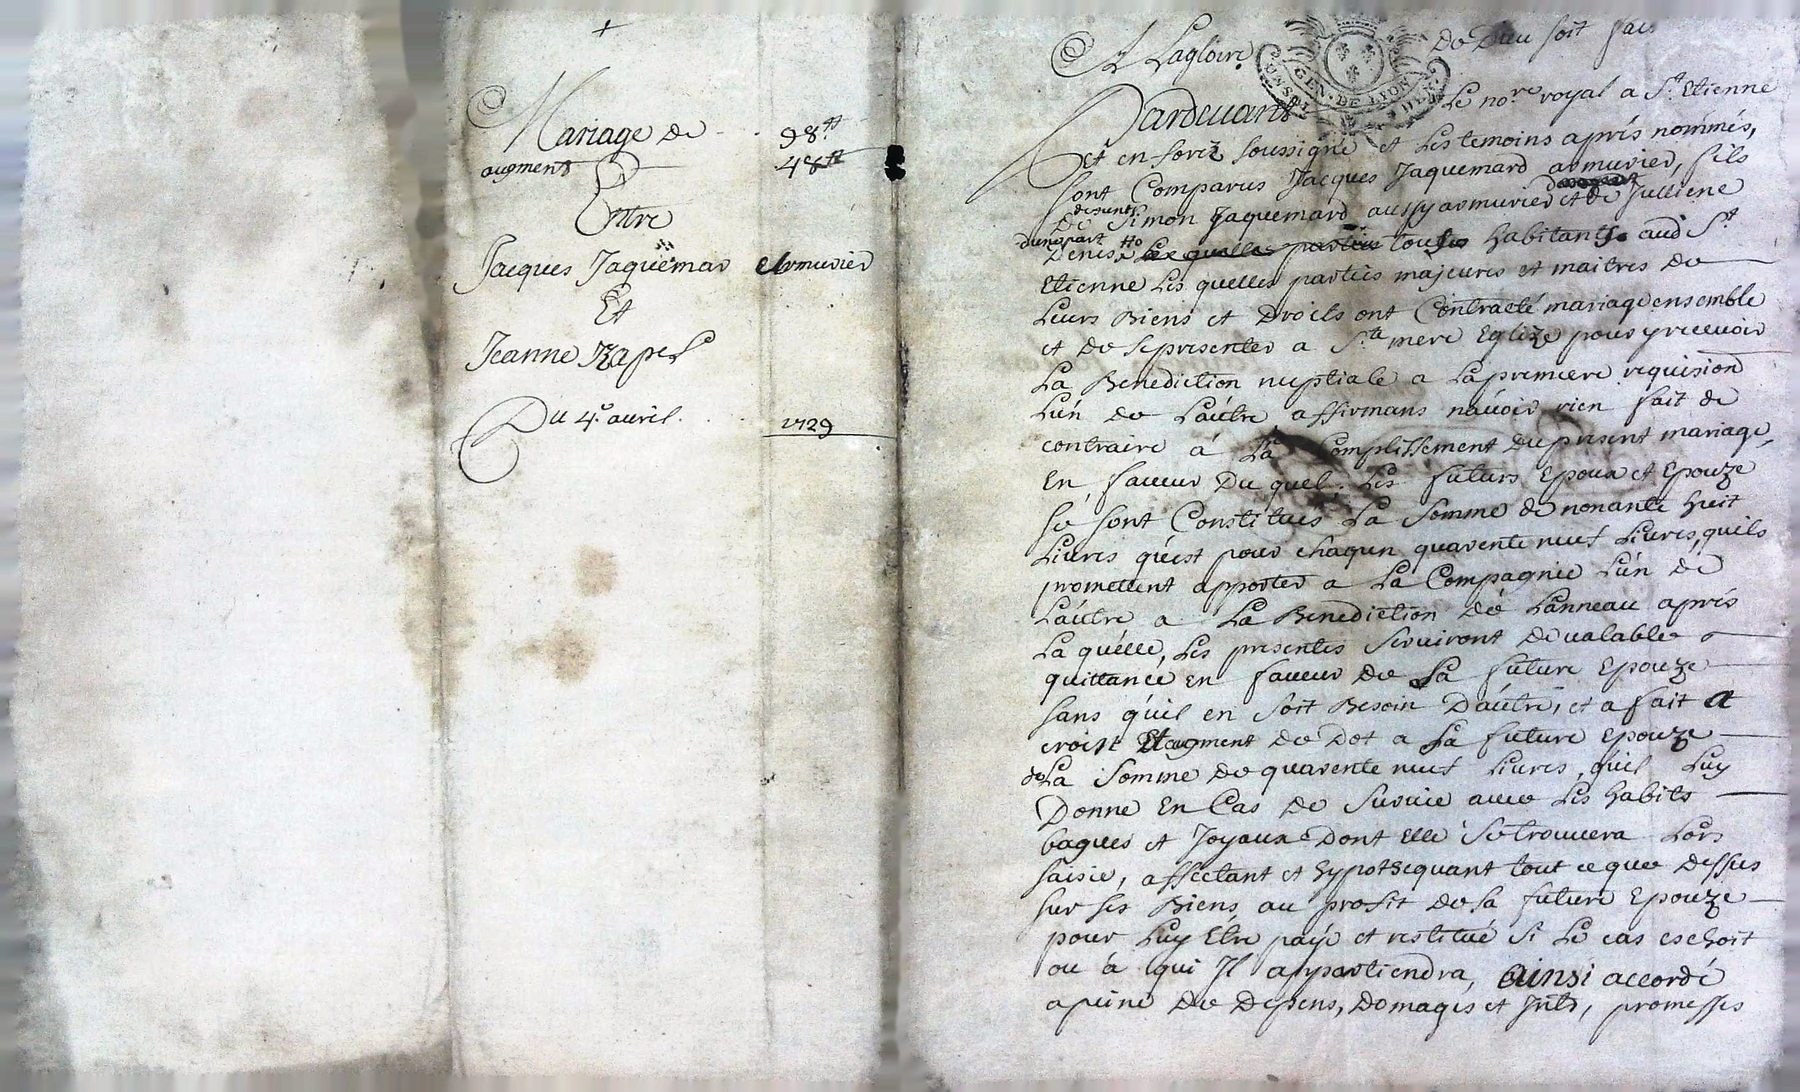 Mariage de 98ᵗᵗ
augment 48ᵗᵗ
Entre
Jacques Jaquemar Armurier
Et
Jeanne Rapet
Du 4e avril. 1729
A Lagloire De Dieu soit fait
GEN·DE LYON
Pardevant Le no.re royal a S.t Etienne
et en forez soussigné et Les temoins aprés nommés,
sont Comparus Jacques Jaquemard armurier, fils
de defunt Simon Jaquemard aussy armurier et de Julliene
Denis d'une part tous habitants aud S.t
Etienne Les quelles parties majeures et maitres de
Leurs Biens et Droits ont Contracté mariage ensemble
et de se presenter a S.te mere Eglize pour y recevoir
La Benediction nuptiale a La premiere requision
L'un de L'autre affirmans n'avoir rien fait de
contraire á La Complissement du present mariage,
En faveur Du quel, Les futurs Epoux et Epouze
se sont Constitués La Somme de nonante huit
Livres qu'est pour chaqun quarente neuf Livres, quils
promettent apporter a La Compagnie L'un de
L'autre a La Benediction de L'anneau aprés
La quélle, Les presentes serviront de valable
quittance en faveur de La future Epouze
sans qu'il en soit Besoin D'autre, et a fait a
croist Et augment de Dot a La future Epouze
de La Somme de quarente neuf Livres, qu'il Luy
Donne En Cas de Survie avec Les habits
bagues et Joyaux Dont elle se trouvera Lors
saisie, affectant et hypothequant tout ce que Dessus
sur ses Biens au profit de sa future Epouze
pour Luy Etre payé et restitué si Le cas eschoit
ou á qui Il appartiendra, ainsi accordé
a peine de Depens, Domages et Jnts, promesses